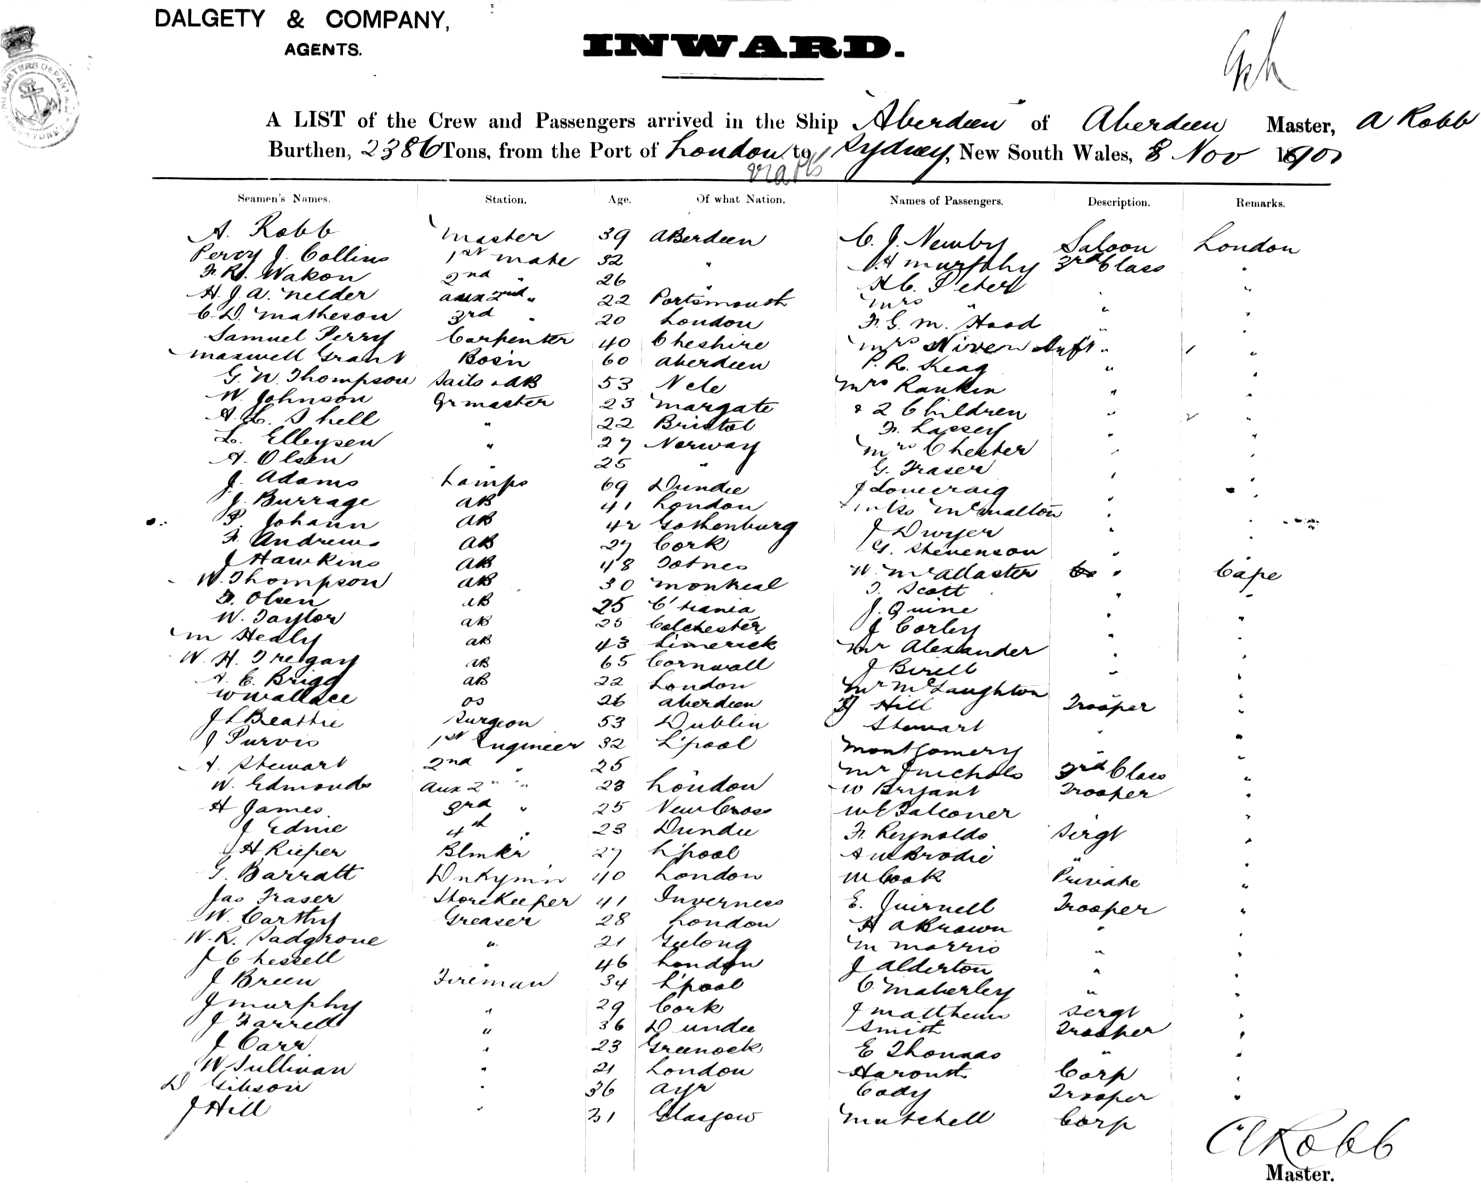 DALGETY & COMPANY,
AGENTS.
INWARD.
A LIST of the Crew and Passengers arrived in the Ship "Aberdeen" of Aberdeen Master, A Robb
Burthen, 2386 Tons, from the Port of London to Sydney, New South Wales, 8 Nov 1900
Seamen's Names. Station. Age. Of what Nation. Names of Passengers. Description. Remarks.
A. Robb Master 39 Aberdeen C. J. Newby Saloon London
Percy J. Collins 1st mate 32 " A H Murphy 3rd Class "
Wakon 2nd " 26 H C Peter " "
H. J. A. Nelder aux 2nd " 22 Portsmouth Mrs " " "
C. D. Matheson 3rd " 20 London F. G. M. Hood " "
Samuel Perry Carpenter 40 Cheshire Mrs Niven " "
Maxwell Grant Bosn 60 Aberdeen P. R. Keag " "
G. W. Thompson Sails & AB 53 Mrs Rankin " "
W. Johnson Qr master 23 Margate & 2 Children " "
A. L. Shell " 22 Bristol F. Lassey " "
L. Elleysen " 27 Norway Mrs Chester " "
A. Olsen " 25 " G. Fraser " "
J. Adams Lamps 69 Dundee J Lonecraig " "
J. Burrage AB 41 London McWalton " "
P. Johann AB 42 Gothenburg J Dwyer " "
F. Andrews AB 27 Cork G. Stevenson " "
J Hawkins AB 48 Totnes W. McAllaster " Cape
W. Thompson AB 30 Montreal T. Scott " "
F. Olsen AB 25 C'tiania J. Quine " "
W. Taylor AB 25 Colchester J Corley " "
M Healy AB 43 Limerick Mr Alexander " "
W. H. Tregay AB 65 Cornwall J Birell " "
A. E. Brigg AB 22 London Mr McLaughton " "
W Wallace OS 26 Aberdeen Hill Trooper "
J L Beattie Surgeon 53 Dublin Stewart " "
J Purvis 1st Engineer 32 L'pool Montgomery " "
A. Stewart 2nd " 25 Mr J Nichols 3rd Class "
W. Edmonds Aux 2nd " 23 London W Bryant Trooper "
H James 3rd " 25 New Cross W E Falconer "
J Ednie 4th " 23 Dundee F. Reynolds Sergt "
J H Rieper Blmkr 27 L'pool A W Brodie " "
G. Barratt Dnkymn 40 London W Cook Private "
Jas Fraser Storekeeper 41 Inverness E. Quirnell Trooper "
W. Carthy Greaser 28 London H A Brown " "
W. R. Sadgrove " 21 Geelong M Morris " "
J Chessell " 46 London J Alderton " "
J Breen Fireman 34 L'pool C Maberley " "
J Murphy " 29 Cork J Matthews Sergt "
J Farrell " 36 Dundee Smith Trooper "
J Carr " 23 Greenock E Thomas " "
W Sullivan " 21 London Corp "
D Gibson " 36 Ayr Cody Trooper "
J Hill " 31 Glasgow Mutchell Corp
A Robb
Master.